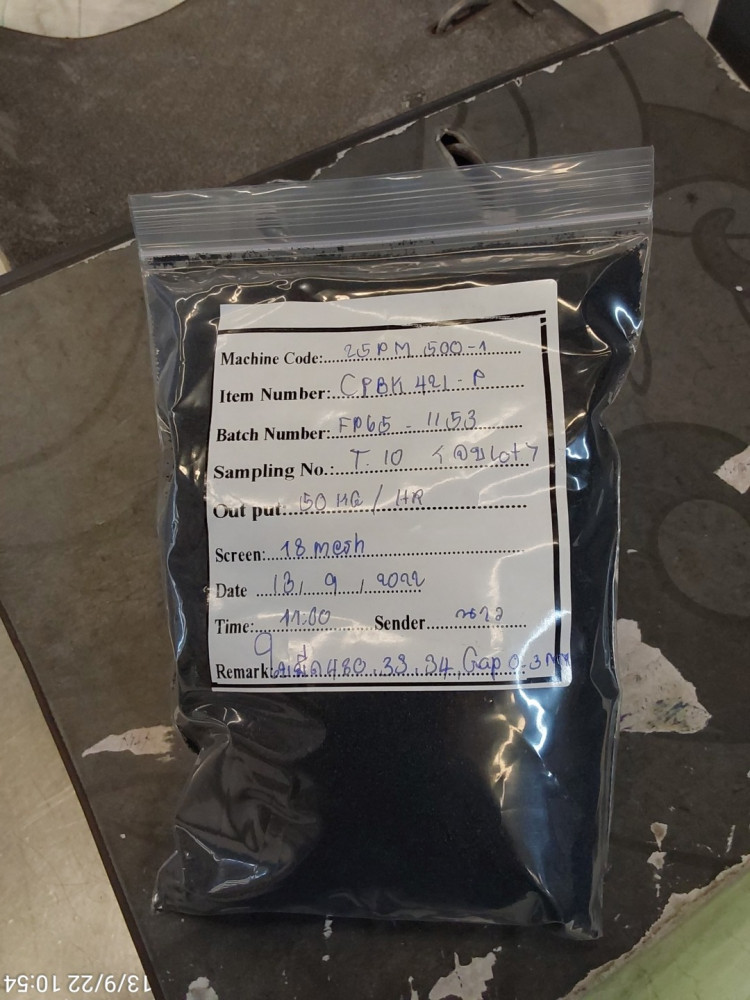 Machine Code: 25PM 500-1
Item Number: CPBK 421-P
Batch Number: FP65-1153
Sampling No.: T.10 lot
Out put: 150 KG / HR
Screen: 18 mesh
Date 13, 9, 2022
Time: 11:00 Sender
Remark: 480, 33, 34, Gap 0.3 MM
13/9/22 10:54